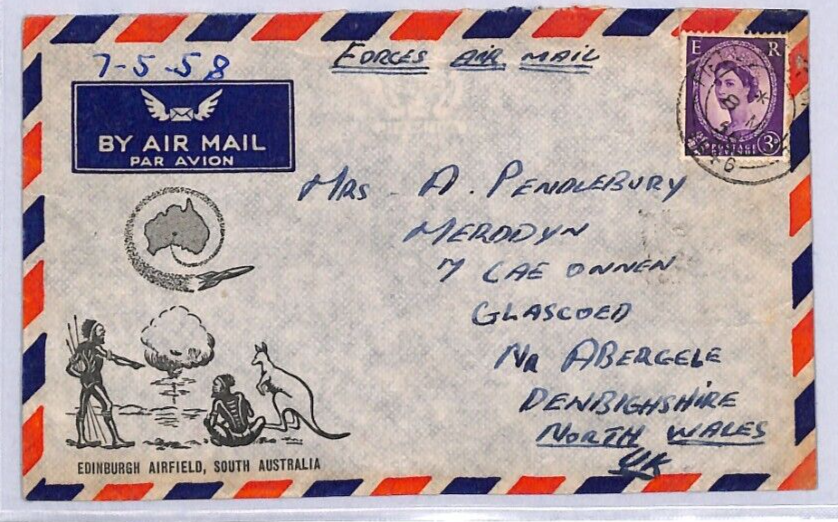 7-5-58
FORCES AIR MAIL
E R
POSTAGE 3D
BY AIR MAIL
PAR AVION
MRS A. PENDLEBURY
MERDDYN
7 CAE ONNEN
GLASCOED
NR ABERGELE
DENBIGHSHIRE
NORTH WALES
UK
EDINBURGH AIRFIELD, SOUTH AUSTRALIA